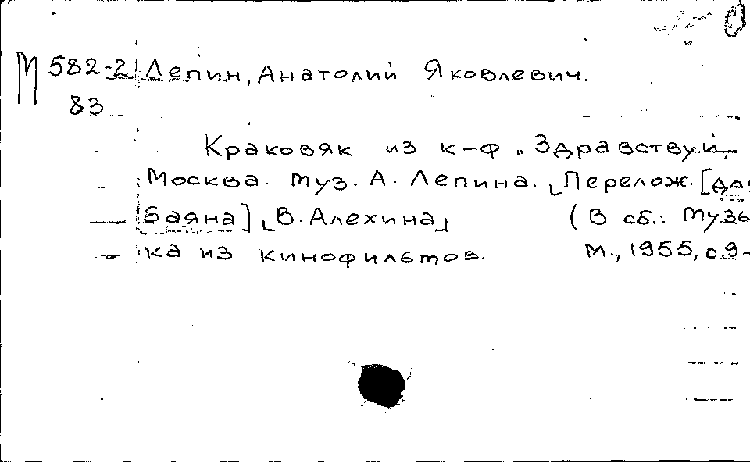 М 582-2 Лепин, Анатолий Яковлевич.
83
Краковяк из к-ф „Здравствуй,
Москва. Муз. А. Лепина. Перелож. [для
баяна] В. Алехина (В сб.: Музы-
ка из кинофильмов. М., 1955, с.9-